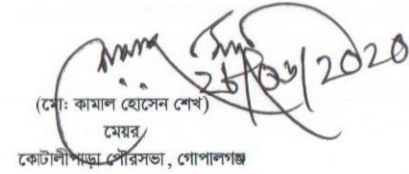 ২৮/০৬/2020
(মো: কামাল হোসেন শেখ)
মেয়র
কোটালীপাড়া পৌরসভা, গোপালগঞ্জ